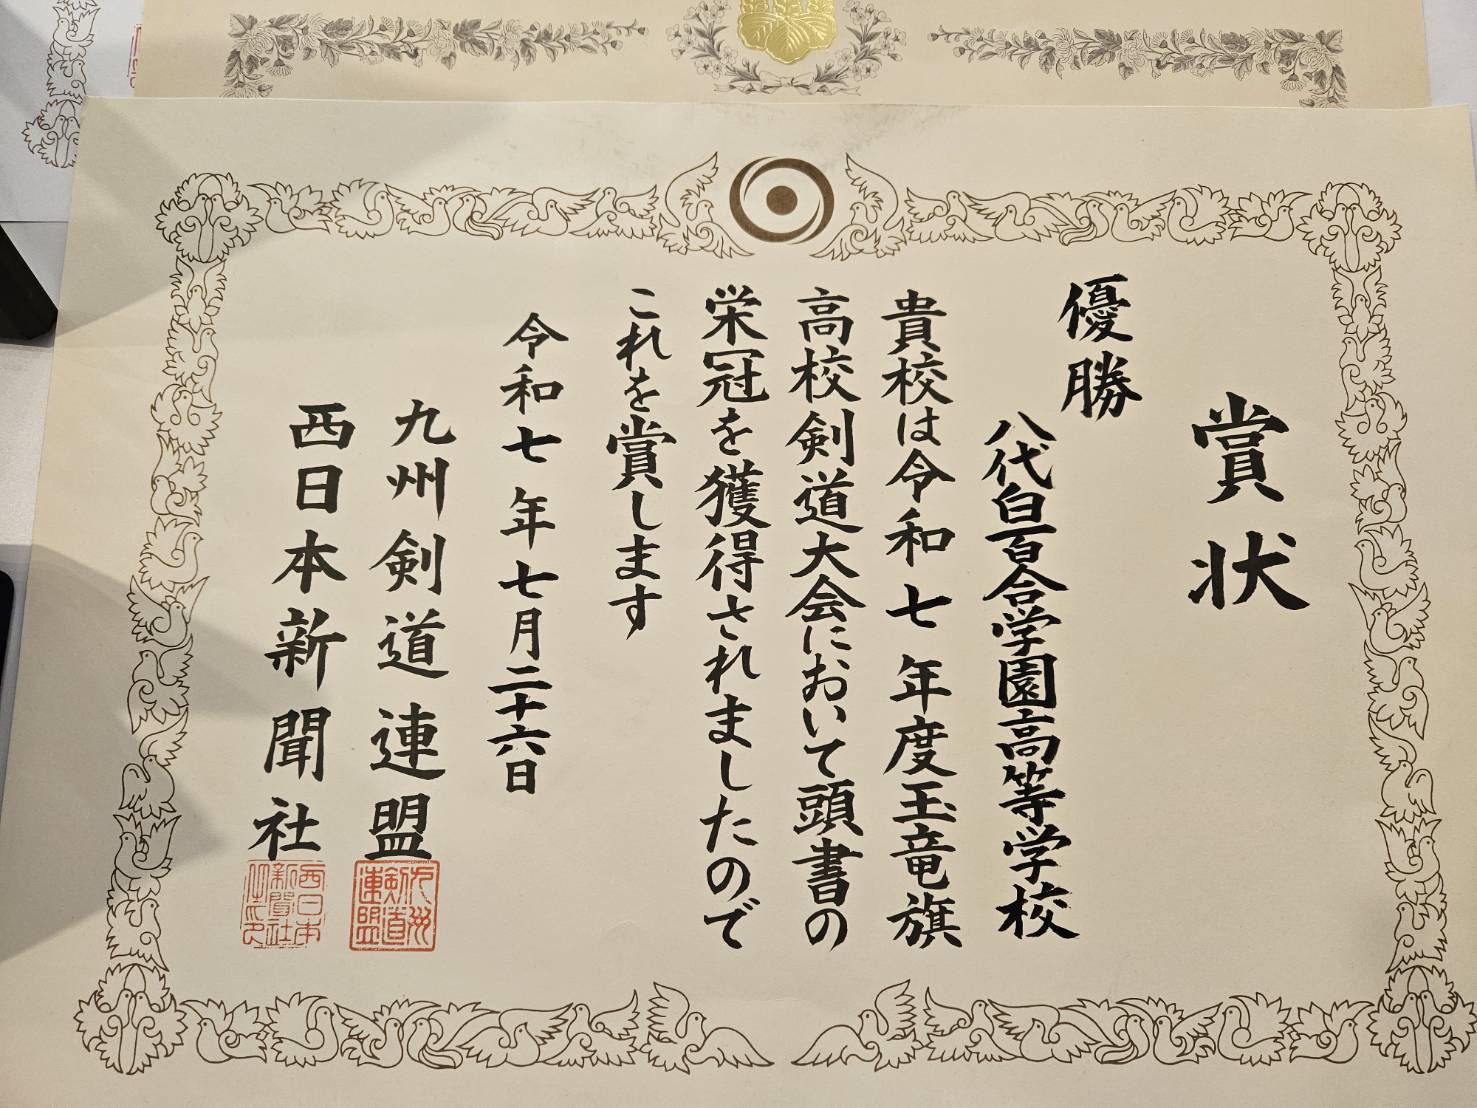 賞状
優勝
八代白百合学園高等学校
貴校は令和七年度玉竜旗
高校剣道大会において頭書の
栄冠を獲得されましたので
これを賞します
令和七年七月二十六日
九州剣道連盟
西日本新聞社
九州剣道連盟
西日本新聞社